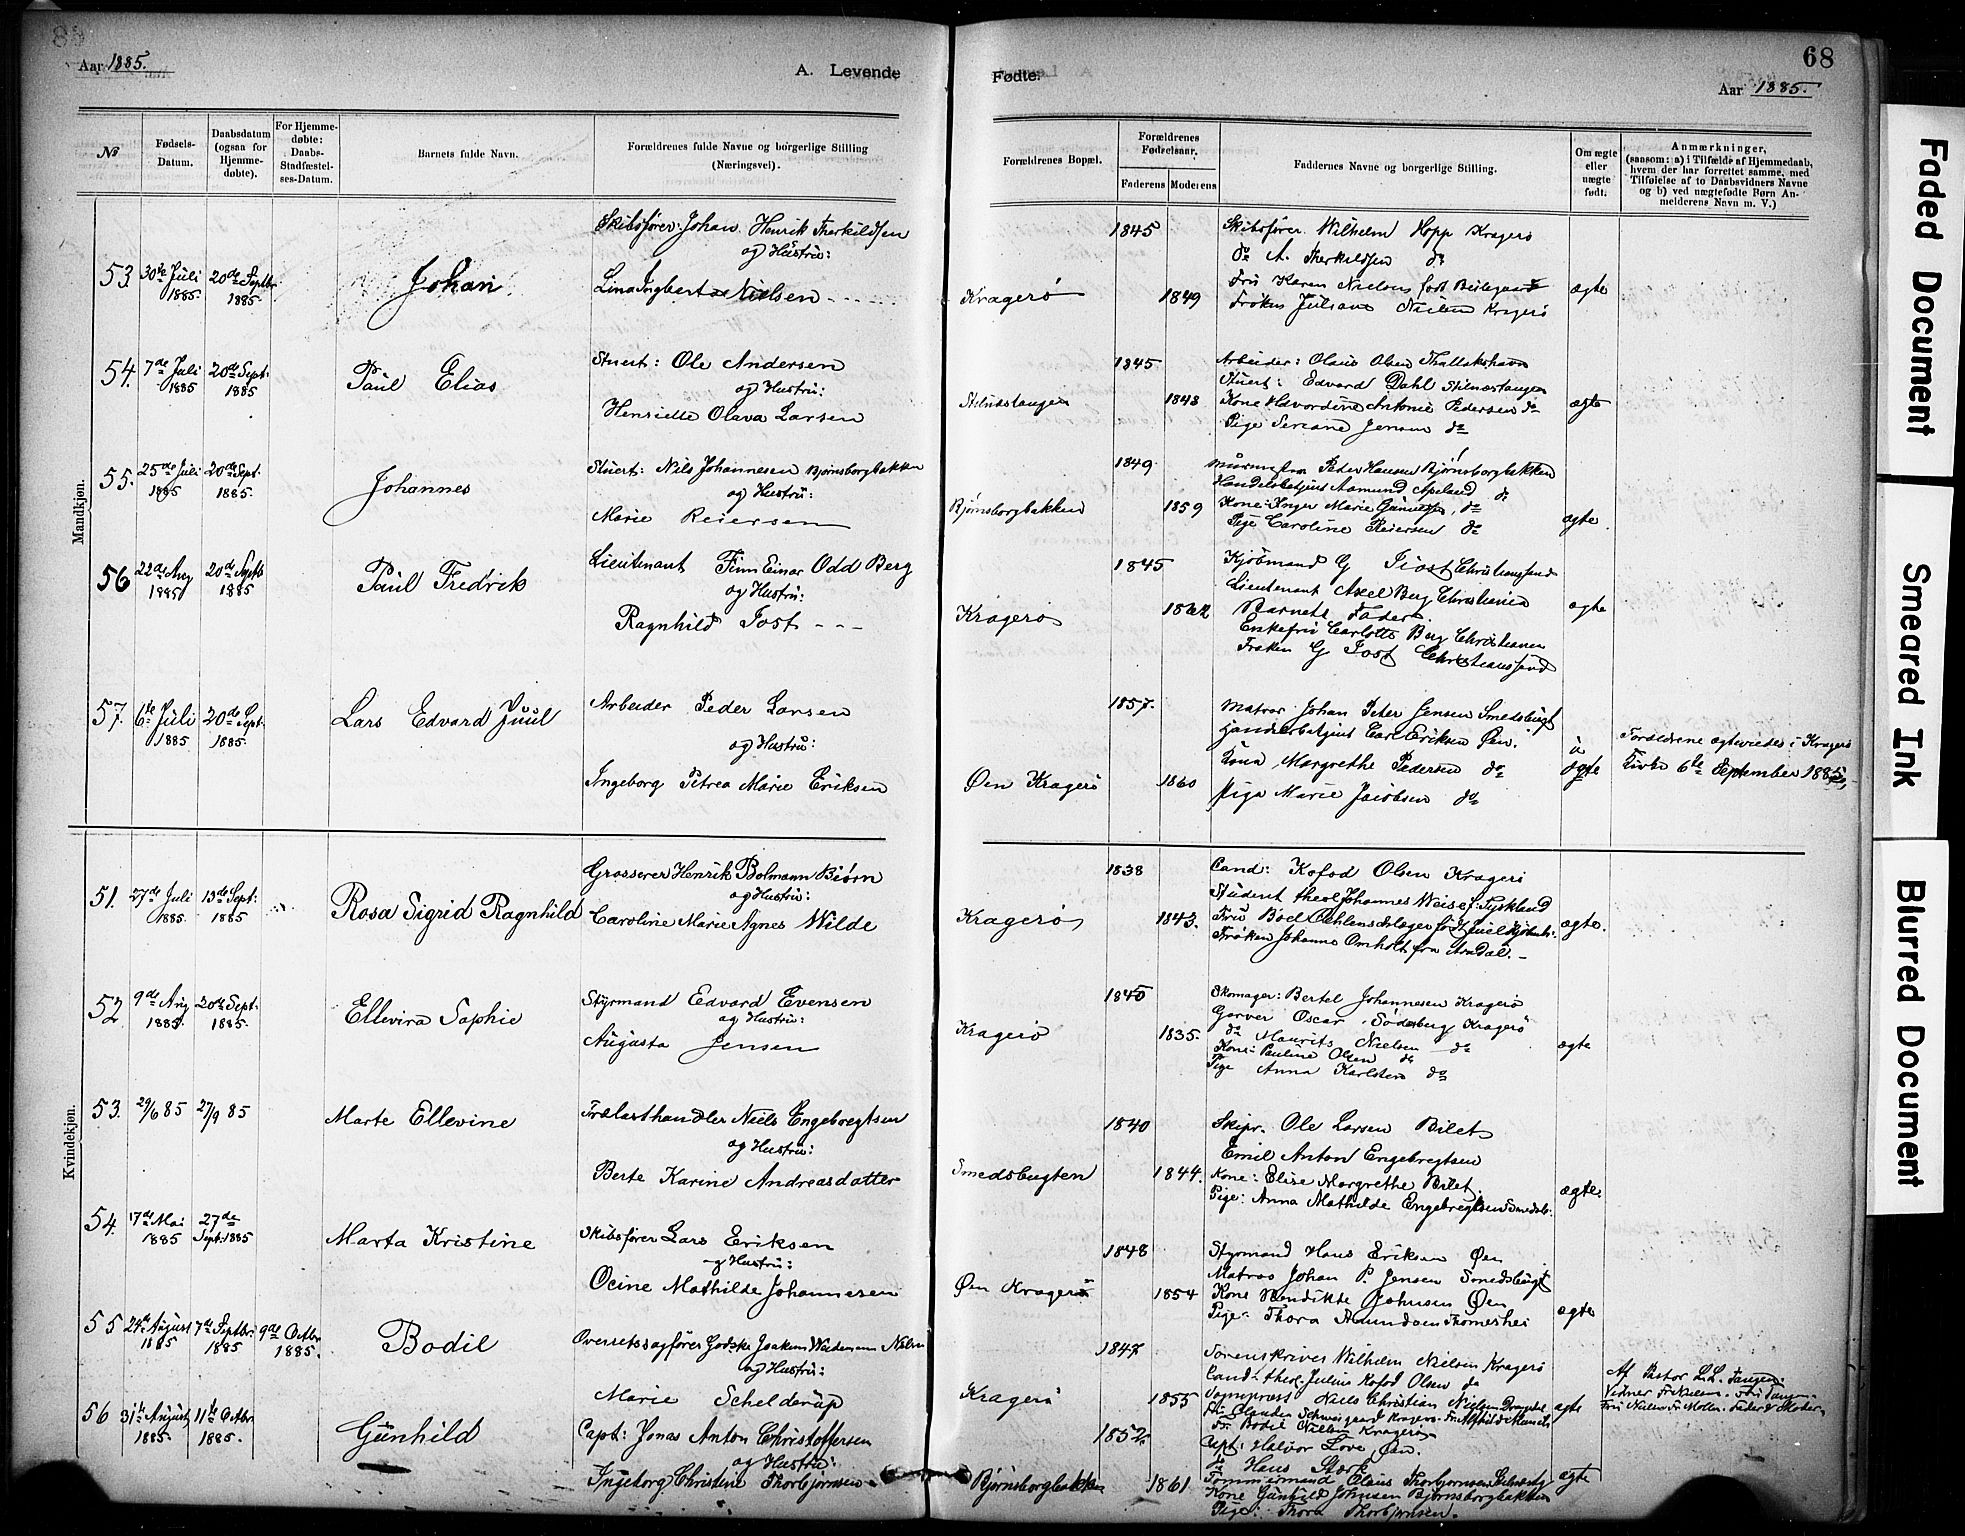 Aar 1885.
A. Levende
Fødte.
68
Aar 1885.
№
Fødsels-Datum.
Daabsdatum (ogsaa for Hjemme-døbte).
For Hjemme-døbte: Daabs-Stadfæstel-ses-Datum.
Barnets fulde Navn.
Forældrenes fulde Navne og borgerlige Stilling (Næringsvei).
Forældrenes Bopæl.
Forældrenes Fødselsaar.
Faderens
Moderens
Faddernes Navne og borgerlige Stilling.
Om ægte eller uægte født.
Anmærkninger,
(saasom: a) i Tilfælde af Hjemmedaab,
hvem der har forrettet samme, med
Tilføielse af to Daabsvidners Navne
og b) ved uægtefødte Børn An-
melderens Navn m. V.)
Mandkjøn.
Skibsfører: Johan Henrik Therkildsen
og Hustru:
53. 30te Juli 1885. 20de Septbr 1885. Johan
Lina Ingbertze Nielsen
Kragerø 1845 1849
Skibsfører. Wilhelm Hopp Kragerø
do A. Therkildsen do
Fru Karen Nielsen født
Frøken Juliane Nielsen Kragerø
ægte
54. 7de Juli 1885 20de Sept: 1885 Paul Elias
Stuert: Ole Andersen
og Hustru:
Henriette Olava Larsen
Stilnæstangen 1845 1843
Arbeider: Olaus Olsen
Stuert: Edvard Dahl Stilnæstangen
Kone Antonie Pedersen do
Pige Seriane Jensen do
ægte
55. 25de Juli 1885 20de Sept: 1885. Johannes
Stuert: Nils Johannesen Bjørnsborgbakken
og Hustru:
Marie Reiersen
Bjørnsborgbakken 1849 1859
Peder Hansen Bjørnsborgbakken
Aamund Apeland do
Kone: Inger Marie do
Pige Caroline Reiersen do
ægte
56 22de Aug 1885 20de Septb 1885 Paul Fredrik
Lieutenant Finn Einar Odd Berg
og Hustru:
Ragnhild Iost
Kragerø 1845
Kjøbmand G Iost Christianssand
Lieutenant Axel Berg Christiania
Barnets Fader.
Enkefru Carlotte Berg Christiania
Frøken G Iost Christianssand
ægte
57. 6te Juli 1885 20de Sept: 1885. Lars Edvard Juul
Arbeider Peder Larsen
og Hustru:
Ingeborg Petrea Marie Eriksen
Øen Kragerø 1857. 1860
Matros Johan Peter Jensen Smedsbugt
Handelsbetjent Carl Eriksen Øen.
Kona Margrethe Pedersen do
Piga Marie Jacobsen do
u ægte
Forældrene ægteviedes i Kragerø
Kirke 6te September 1885,
Kvindekjøn.
51. 27de Juli 1885. 13de Sept: 1885 Rosa Sigrid Ragnhild
Grosserer Henrik Bolmann Biørn
og Hustru:
Caroline Marie Agnes Wilde
Kragerø 1838 1843.
Cand: Kofod Olsen Kragerø
Student theol Johannes Weise f: Tyskland
Fru Boel Oehlenschlæger
Frøken Johanne Omholt fra Arendal.
ægte.
52 9de Aug 1885. 20de Sept: 1885. Ellevira Sophie
Styrmand Edvard Evensen
og Hustru:
Augusta Jensen
Kragerø 1840 1835.
Skomager: Bertel Johannesen Kragerø
Garver Oscar Søderberg Kragerø
do Maurits Nielsen do
Kone: Pauline Olsen do
Pige Anna Karlsten do
ægte
53. 29/6 85 27/9 85 Marte Ellevine
Trælasthandler Niels Engebregtsen
og Hustru:
Berte Karine Andreasdatter
Smedsbugten 1840 1844.
Skipr. Ole Larsen Bilet
Emil Anton Engebregtsen
Kone: Elise Margrethe Bilet.
Pige: Anna Mathilde Engebregtsen Smedsb:
ægte.
54. 17de Mai 1885 27de Sept: 1885 Marta Kristine
Skibsfører Lars Eriksen
og Hustru:
Ocine Mathilde Johannesen
Øen Kragerø 1848 1854
Styrmand Hans Eriksen Øen
Matros Johan P. Jensen Smedsbugt
Kone Johnsen Øen
Pige Thora Amundsen
ægte
55 24de August 1885 7de Septbr: 1885 9de Octbr 1885. Bodil
Oversetssagfører Godske Joakum Waldemann Nielsen
og Hustru:
Marie Schelderup
Kragerø 1847. 1855
Sorenskriver Wilhelm Nielsen Kragerø
Cand: theol. Julius Kofod Olsen do
Sognepræst Niels Christian Nielsen
Fr: Bodil Nielsen Kragerø
ægte
Af Pastor L.L. Tangen.
56 31te August 1885 11te Octbr 1885. Gunhild
Capt: Jonas Anton Christoffersen
og Hustru:
Ingeborg Christine Thorbjørnsen
Bjørnsborgbakken 1852. 1861
Capt: Halvor Love, Øen.
do Hans Stork
Tømmermand Claus Thorbjørnsen
Kone Gunhild Johnsen Bjørnsborgbakken
Pige: Thora Thorbjørnsen.
ægte
Faded Document
Smeared Ink
Blurred Document